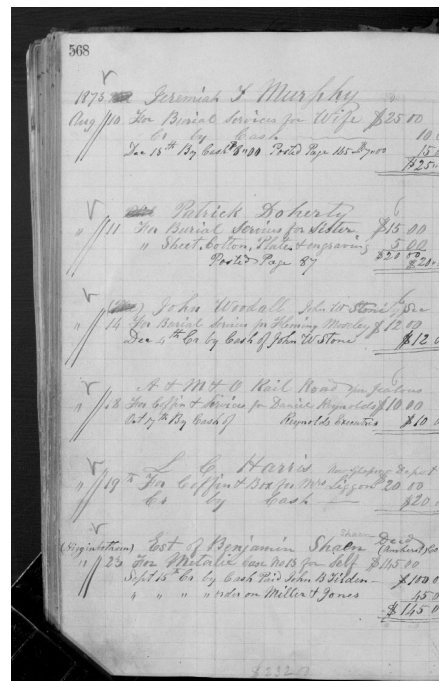 568
1873 Jeremiah F Murphy
Aug 10 For Burial Services for Wife $25 00
Cr by Cash 10
Dec 15th By Cash $8.00 Posted Page 155 $7.00 15
$25
Patrick Doherty
" 11 For Burial Services for Sister $15 00
" Sheet, Cotton, Plate & engraving 5 00
Posted Page 87 $20 00
$20
John Woodall John W Stone
" 14 For Burial Services for Fleming Mosley $12 00
Dec 4th Cr by Cash of John W. Stone $12
A & M & O Rail Road
" 18 For Coffin & Services for Daniel Reynolds $10 00
Oct 17th By Cash of Reynolds Executors $10
L C Harris
" 19th For Coffin & Box for Mrs Liggon 20 00
Cr by Cash $20
Est of Benjamin Decd
" 23 For Metalic Case No 13 for Self $145 00
Sept 15th Cr by Cash Paid John B Tilden $100
" " " " order on Miller & Jones 45 0
$145